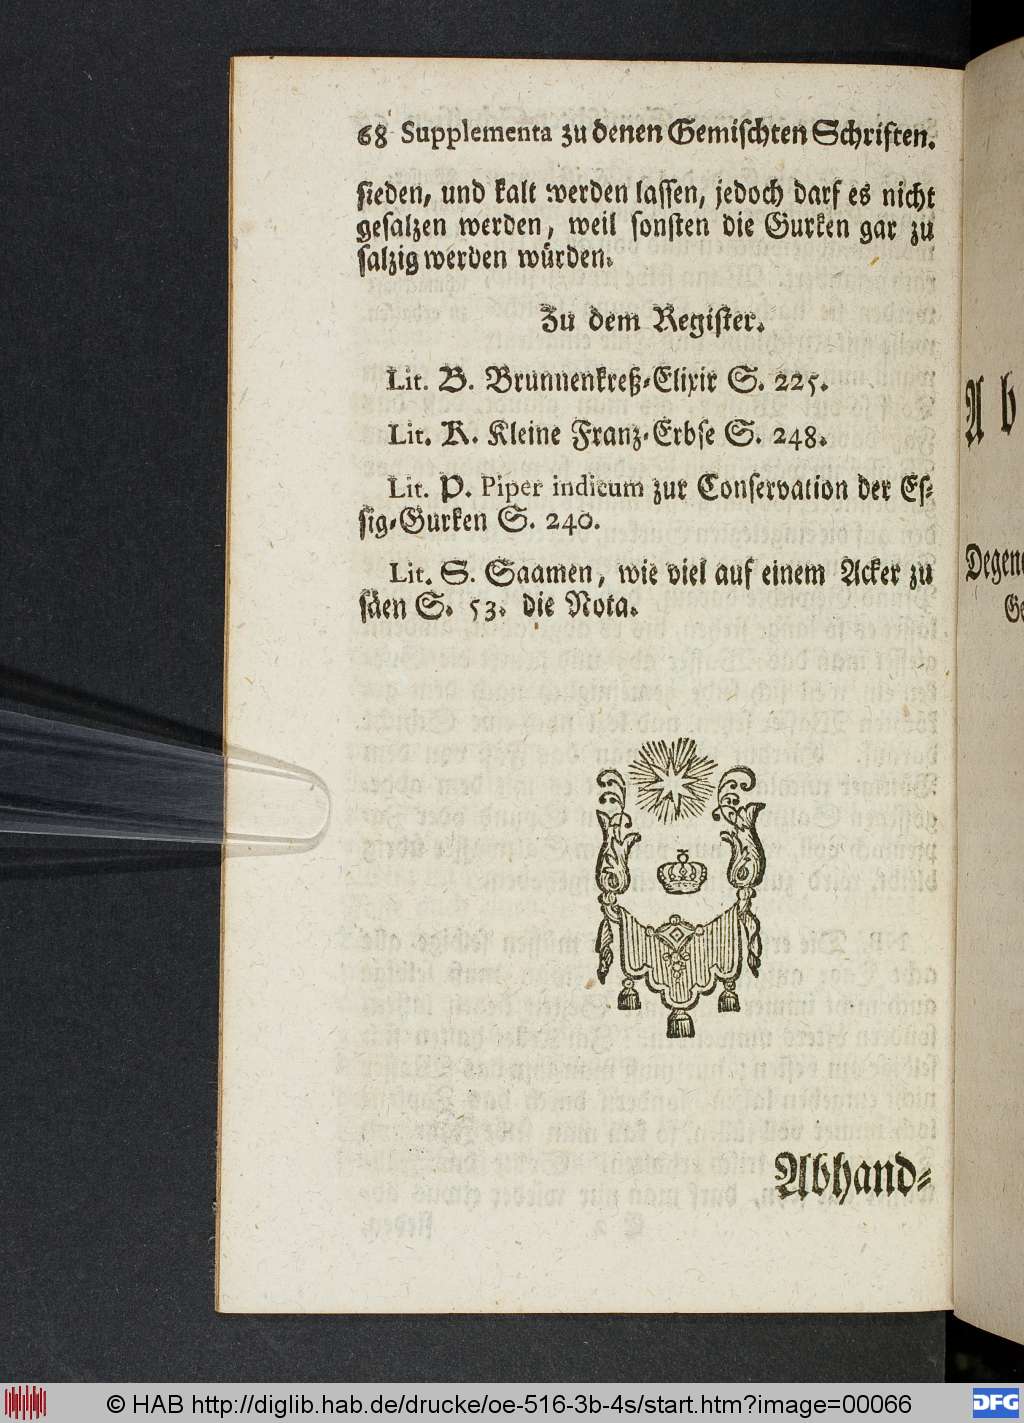 68 Supplementa zu denen Gemischten Schriften.
sieden, und kalt werden lassen, jedoch darf es nicht
gesalzen werden, weil sonsten die Gurken gar zu
salzig werden würden.
Zu dem Register.
Lit. B. Brunnenkreß-Elixir S. 225.
Lit. K. Kleine Franz-Erbse S. 248.
Lit. P. Piper indicum zur Conservation der Es-
sig-Gurken S. 240.
Lit. S. Saamen, wie viel auf einem Acker zu
säen S. 53. die Nota.
Abhand-
Ab
Degen
Ge
© HAB http://diglib.hab.de/drucke/oe-516-3b-4s/start.htm?image=00066
DFG